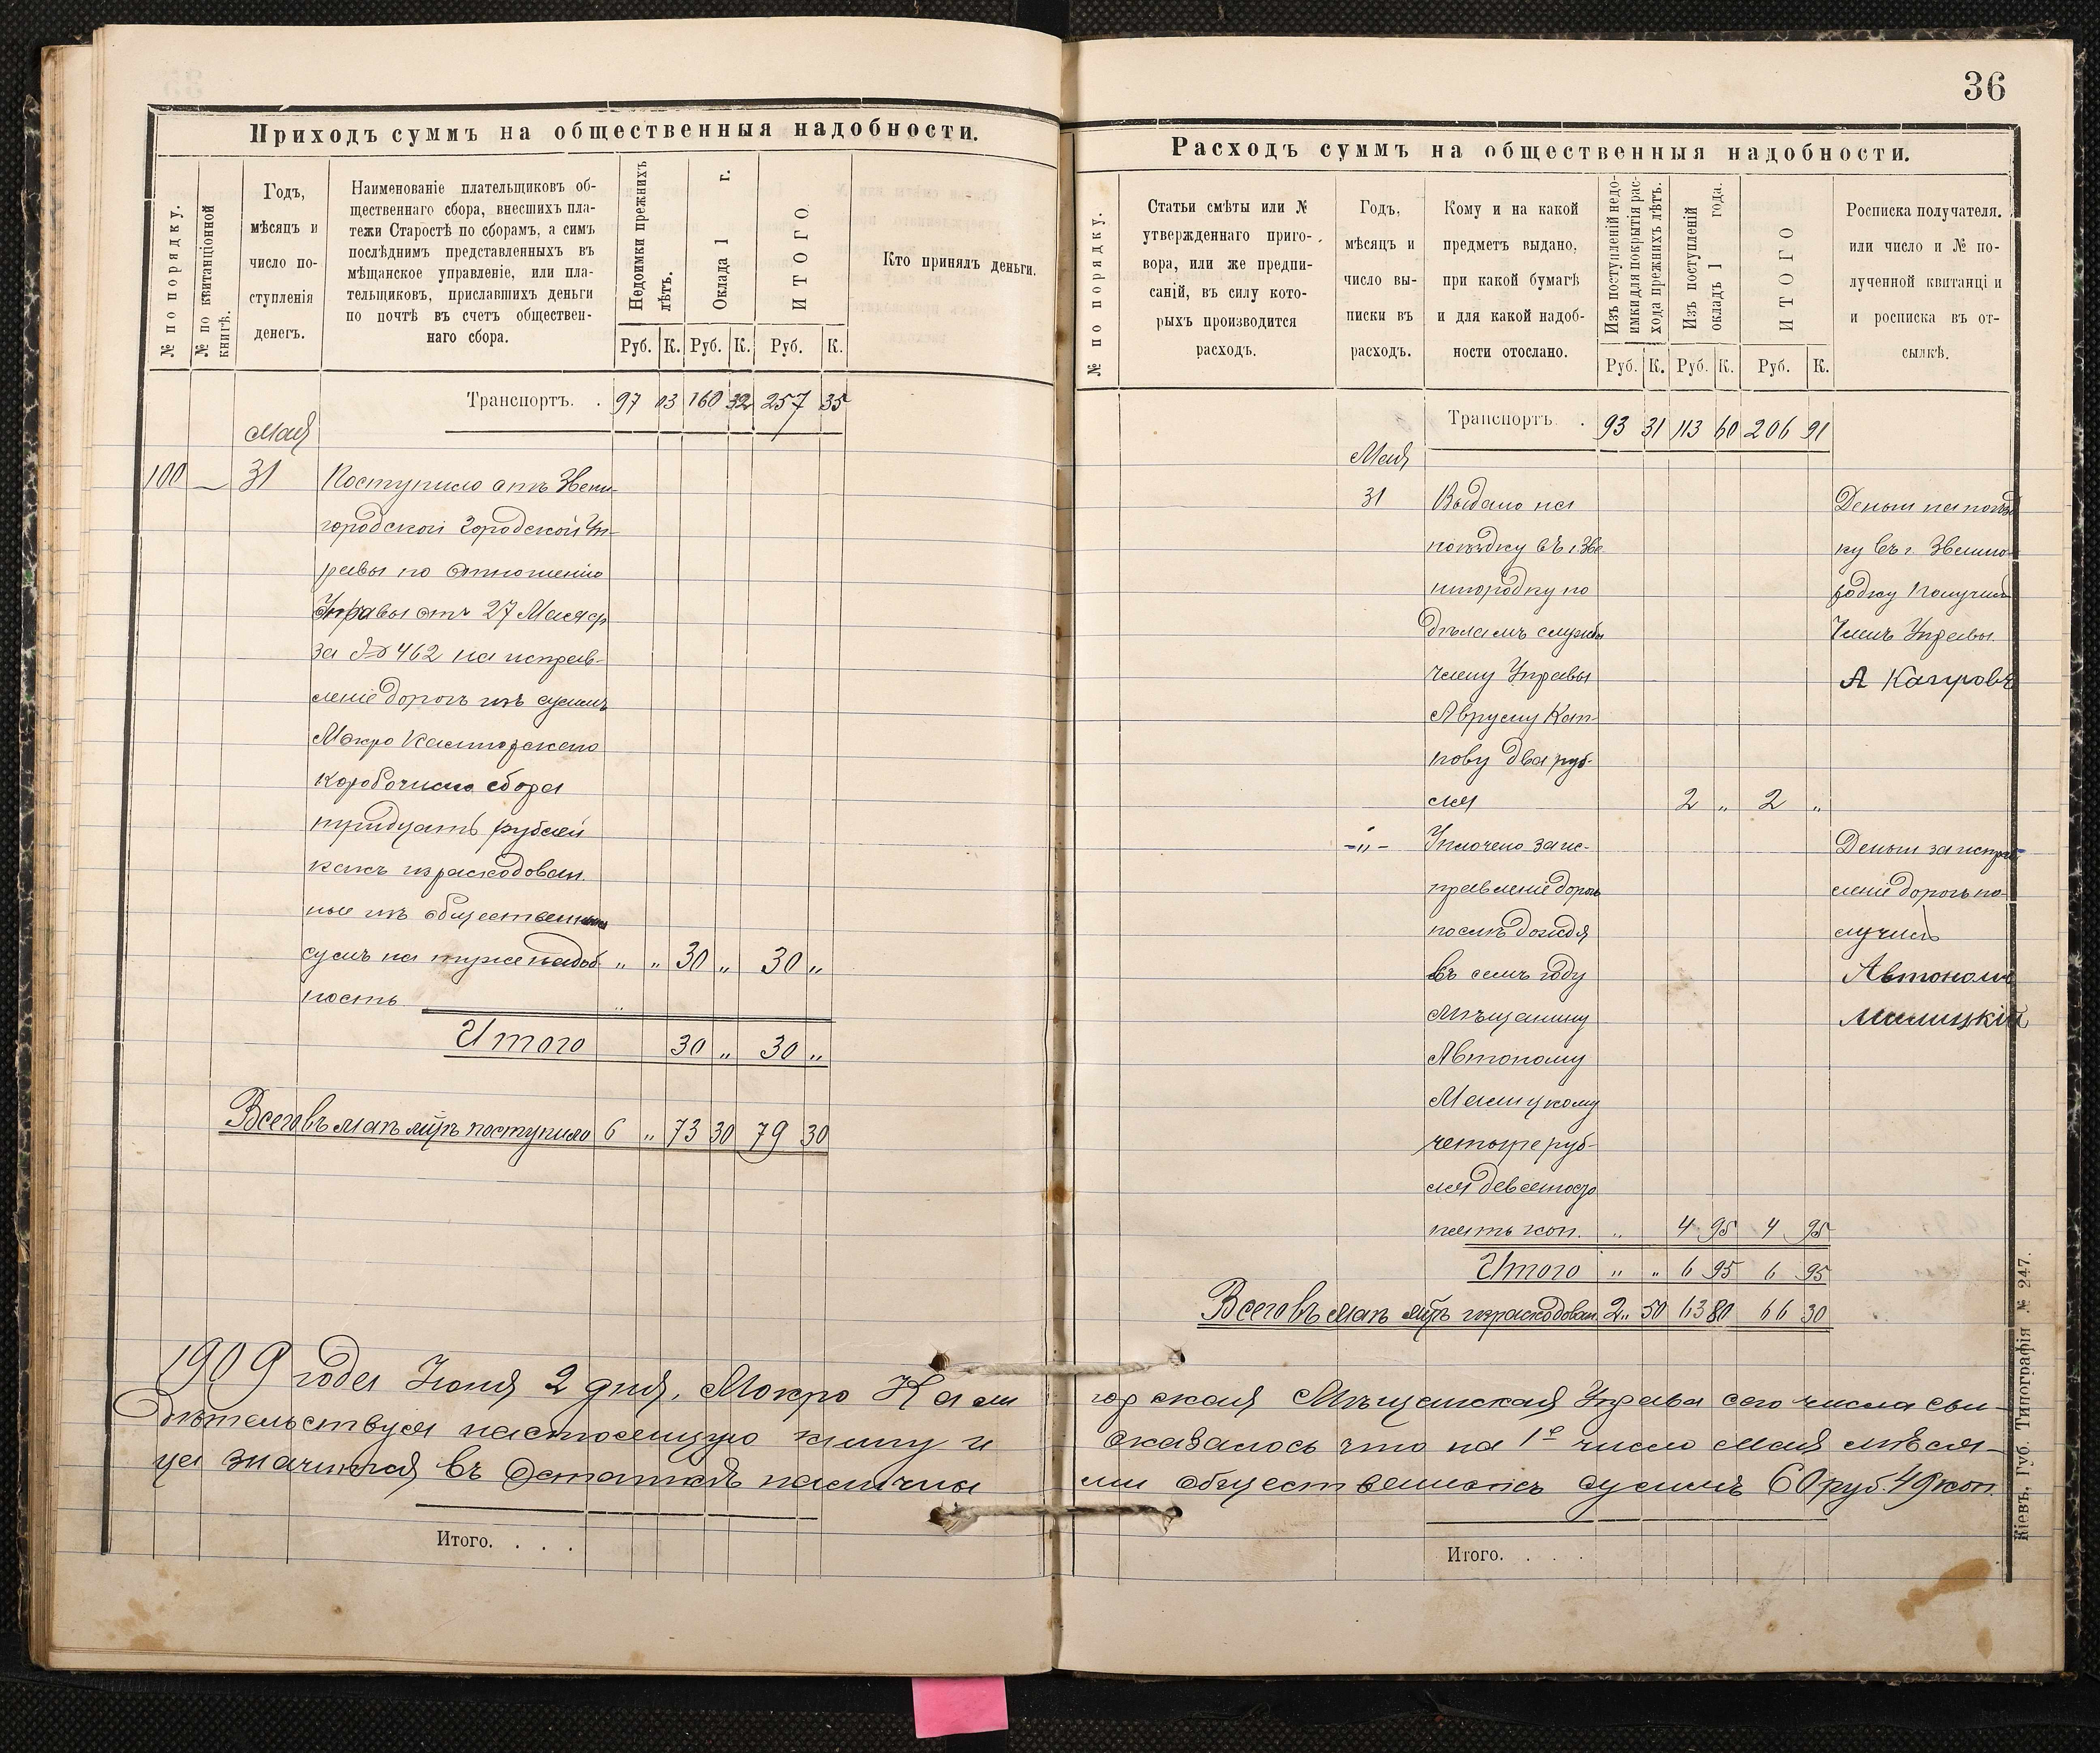 Приходъ суммъ на общественныя надобности.
№ по порядку.
№ по квитанціонной
книгѣ.
Годъ,
мѣсяцъ и
число по-
ступленія
денегъ.
Наименованіе плательщиковъ об-
щественнаго сбора, внесшихъ пла-
тежи Старостѣ по сборамъ, а симъ
послѣднимъ представленныхъ въ
мѣщанское управленіе, или пла-
тельщиковъ, приславшихъ деньги
по почтѣ въ счетъ обществен-
наго сбора.
Недоимки прежнихъ
лѣтъ.
Оклада 1 г.
ИТОГО
Кто принялъ деньги.
Руб. К. Руб. К. Руб. К.
Транспортъ. . 97 03 160 32 257 35
Мая
100 — 31 Поступило отъ Звени-
городской Городской Уп-
равы по отношенію
Управы отъ 27 Мая
за № 462 на исправ-
леніе дорогъ изъ суммъ
Мокро Калигорскаго
коробочнаго сбора
тридцать рублей
какъ израсходован-
ные изъ общественныхъ
сумъ на туже надоб- „ „ 30 „ 30 „
ность „
Итого 30 „ 30 „
Всего въ маѣ м-цѣ поступило 6 „ 73 30 79 30
1909 года Іюня 2 дня, Мокро Кали
дѣтельствуя настоящую книгу и
ца значится въ остаткѣ наличны
Итого. . . .
36
Расходъ суммъ на общественныя надобности.
№ по порядку.
Статьи смѣты или №
утвержденнаго приго-
вора, или же предпи-
саній, въ силу кото-
рыхъ производится
расходъ.
Годъ,
мѣсяцъ и
число вы-
писки въ
расходъ.
Кому и на какой
предметъ выдано,
при какой бумагѣ
и для какой надоб-
ности отослано.
Изъ поступленій недо-
имки для покрытія рас-
хода прежнихъ лѣтъ.
Изъ поступленій
окладъ 1 года.
ИТОГО
Росписка получателя.
или число и № по-
лученной квитанці и
и росписка въ от-
сылкѣ.
Руб. К. Руб. К. Руб. К.
Транспортъ . 93 31 113 60 206 91
Мая
31 Выдано на
поѣздку въ г. Зве-
нигородку по
дѣламъ службы
члену Управы
Авруму Кап-
нову два руб-
ля 2 „ 2 „
Деньги на поѣзд
ку въ г. Звениго-
родку получилъ
Членъ Управы
-„- Уплочено за ис-
правленіе дорогъ
послѣ дождя
въ семъ году
Мѣщанину
Автоному
Малицкому
четыре руб-
ля девяносто
пять коп. „ 4 95 4 95
Деньги за исправ
леніе дорогъ по-
лучилъ
Автономъ
Малицкій
Итого „ „ 6 95 6 95
Всего въ маѣ м-цѣ израсходован. 2 „ 50 63 80 66 30
горская Мѣщанская Управа сего числа сви-
оказалось что на 1е число мая мѣся-
ми общественныхъ суммъ 60 руб. 49 коп.
Итого. . . .
Кіевъ, Губ. Типографія № 247.